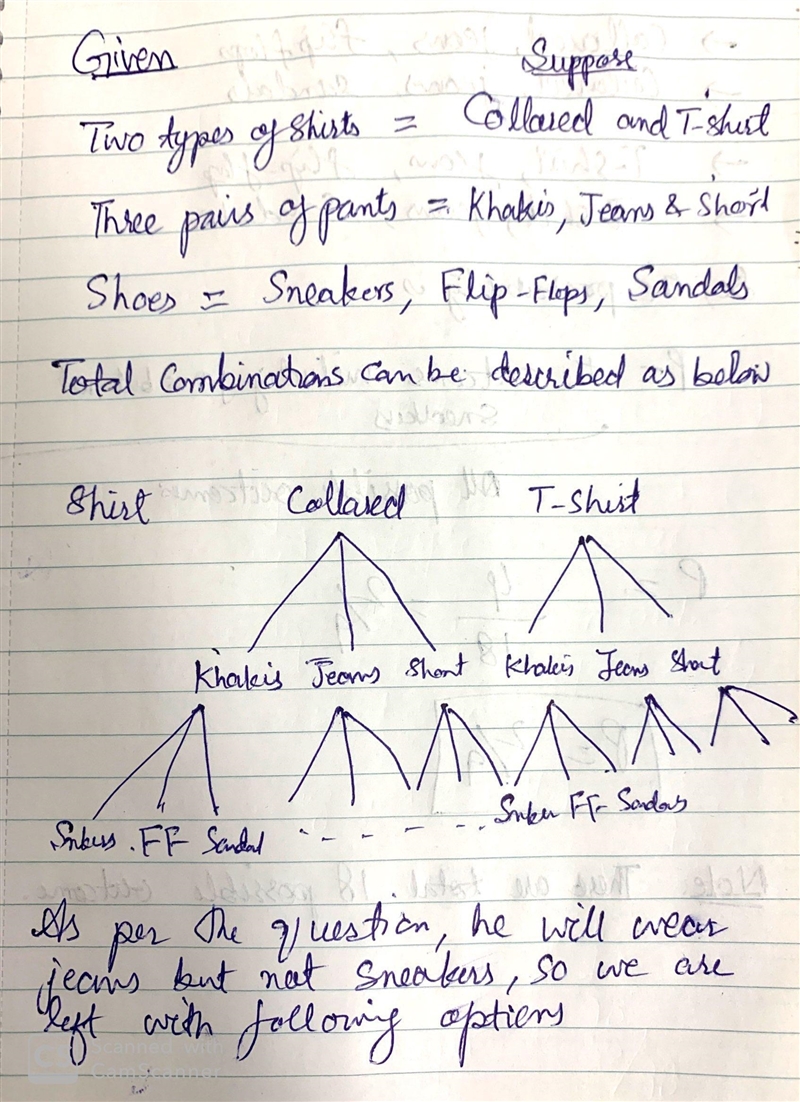 Given Suppose
Two types of Shirts = Collared and T-shirt
Three pairs of pants = Khakis, Jeans & Short
Shoes = Sneakers, Flip-Flops, Sandals
Total Combinations can be described as below
Shirt Collared T-Shirt
Khakis Jeans Short Khakis Jeans Short
Snkers . FF Sandal - - - - - Snker FF Sandals
As per the question, he will wear
jeans but not sneakers, so we are
left with following options
Scanned with
CamScanner